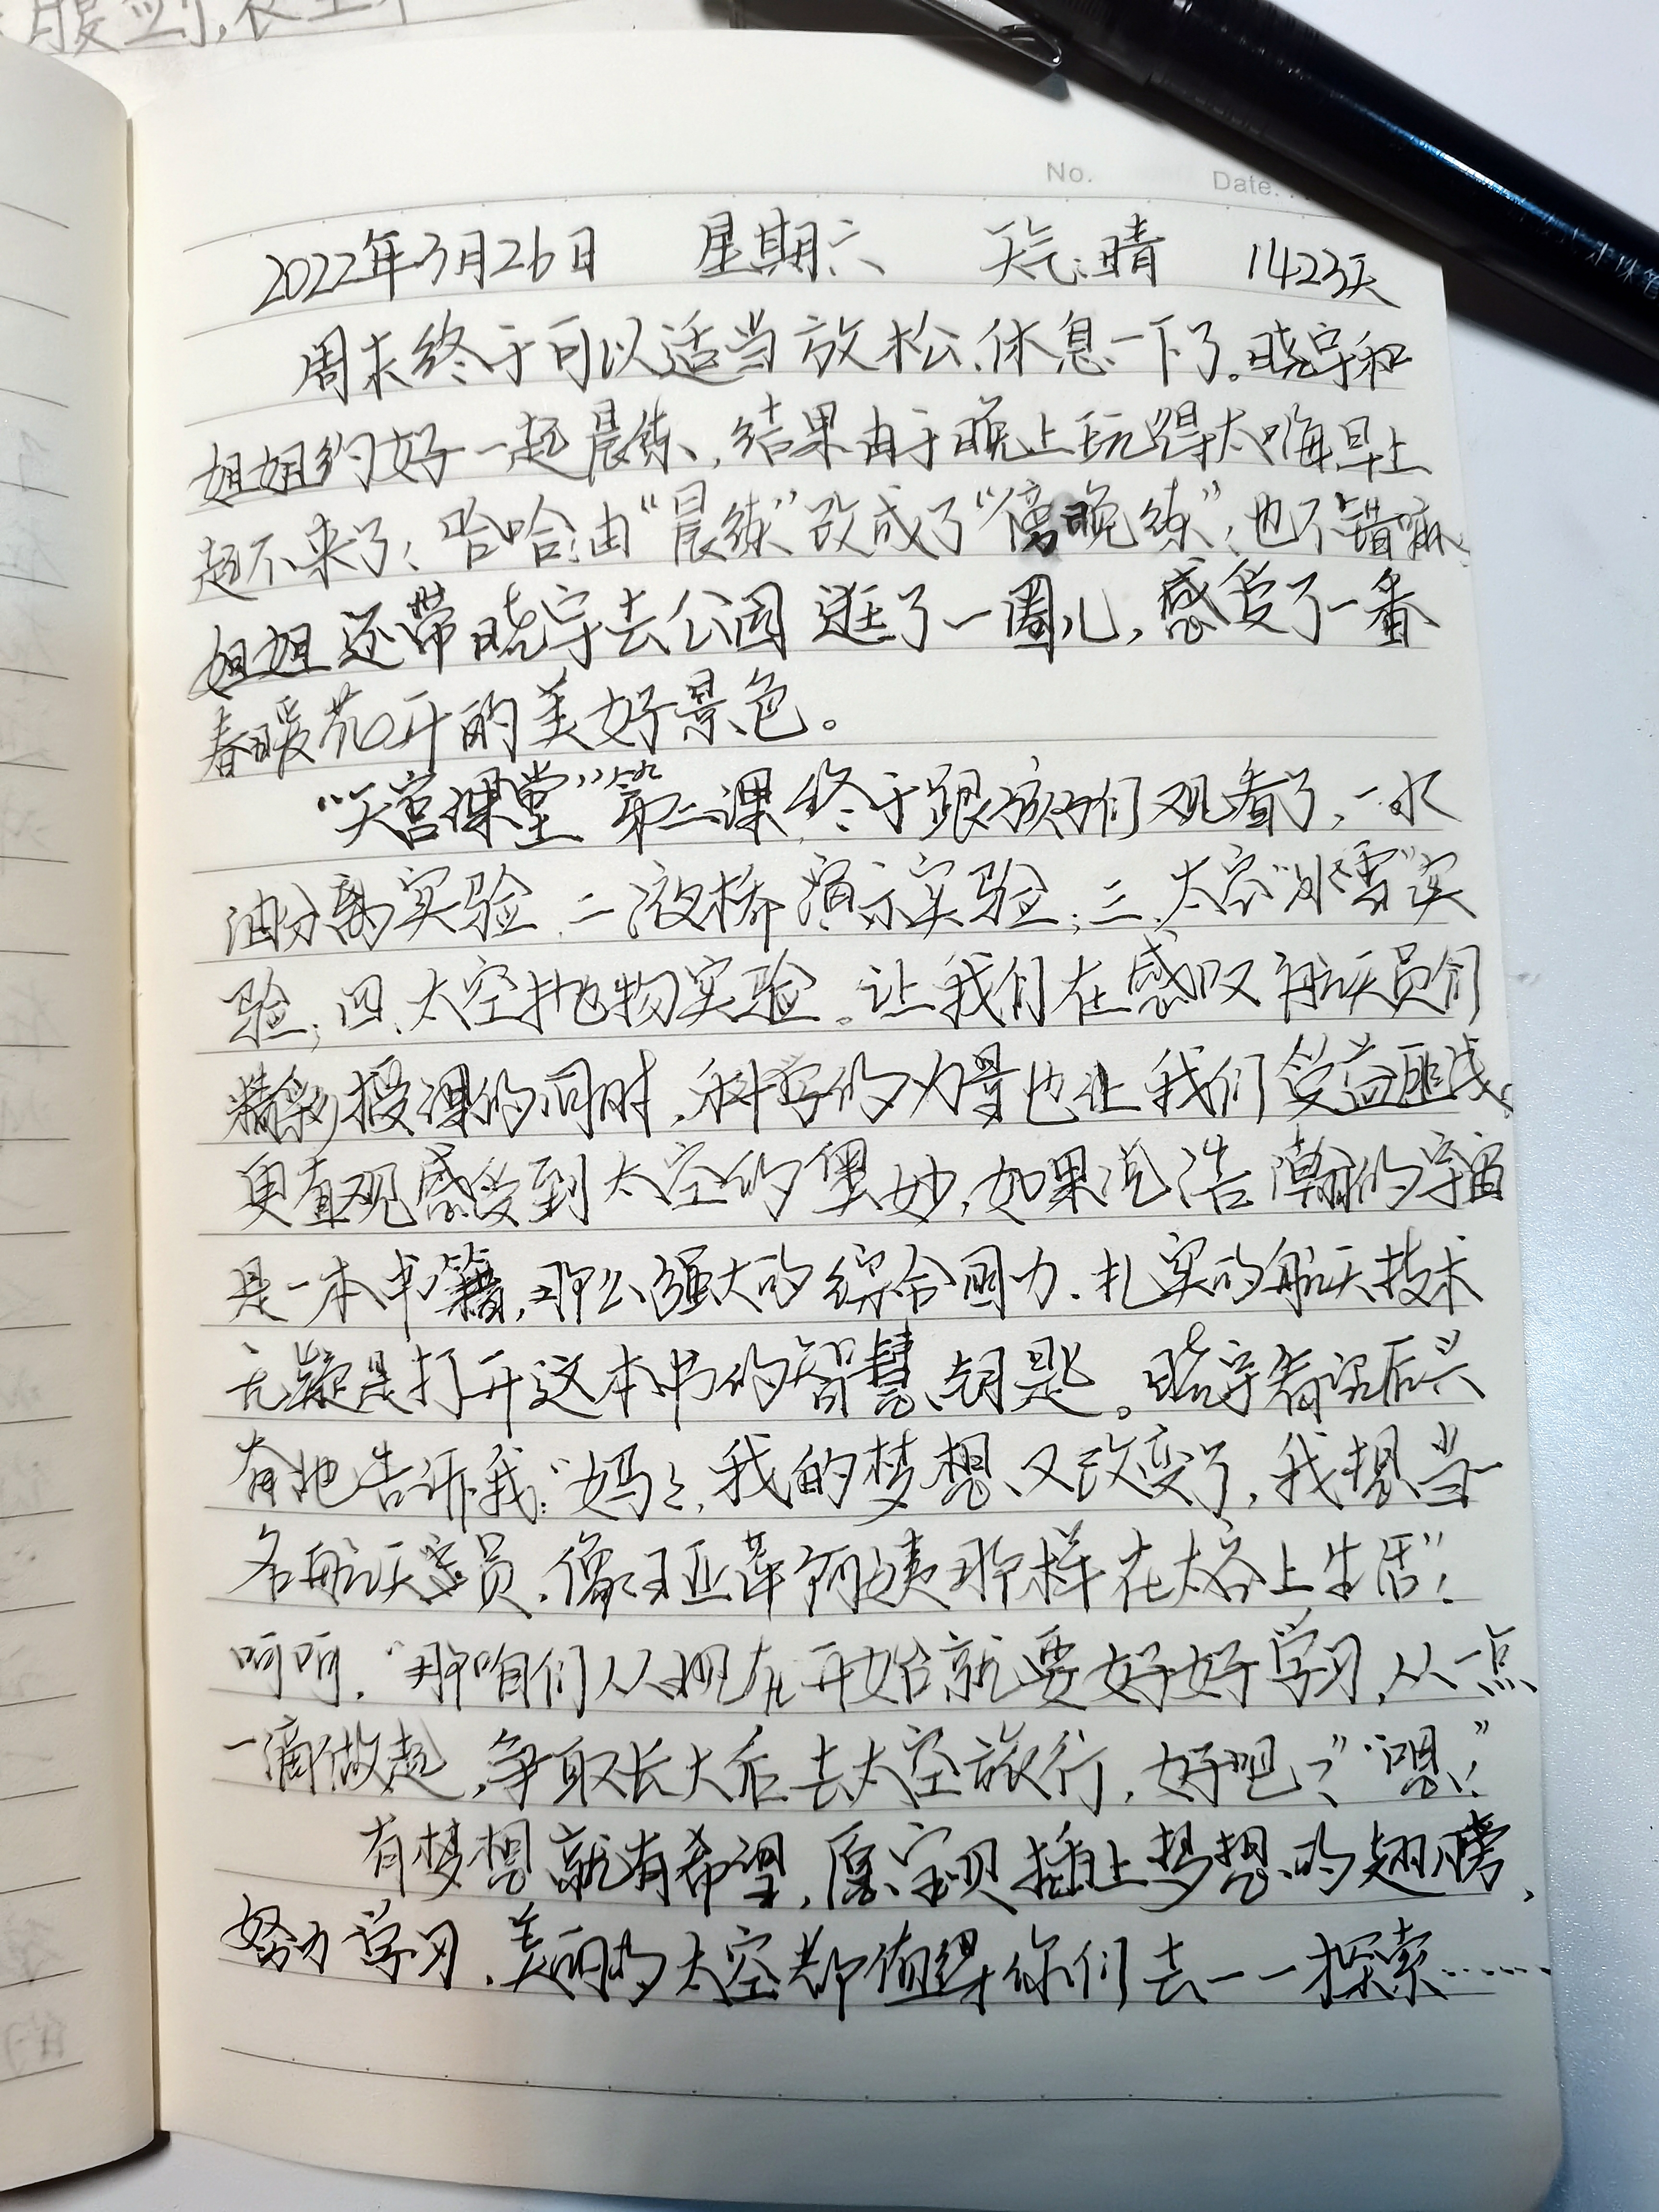 No. Date.
2022年3月26日 星期六 天气:晴 1423天
周末终于可以适当放松、休息一下了。晓宇和
姐姐约好一起晨练,结果由于晚上玩得太嗨早上
起不来了!哈哈!由“晨练”改成了“傍晚练”,也不错嘛、
姐姐还带晓宇去公园逛了一圈儿,感受了一番
春暖花开的美好景色。
“天宫课堂”第二课,终于跟孩子们观看了,一、水
油分离实验、二、液桥演示实验;三、太空“冰雪”实
验;四、太空抛物实验。让我们在感叹航天员们
精彩授课的同时,科学的力量也让我们受益匪浅、
更直观感受到太空的奥妙,如果说浩瀚的宇宙
是一本书籍,那么强大的综合国力、扎实的航天技术
无疑是打开这本书的智慧钥匙。晓宇看完后兴
奋地告诉我:“妈妈,我的梦想又改变了,我想当一
名航天宇员,像王亚萍阿姨那样在太空上生活”!
呵呵,“那咱们从现在开始就要好好学习,从一点
一滴做起,争取长大后去太空旅行,好吧?”“嗯!”
有梦想就有希望,愿宝贝插上梦想的翅膀,
努力学习,美丽的太空都值得你们去一一探索……